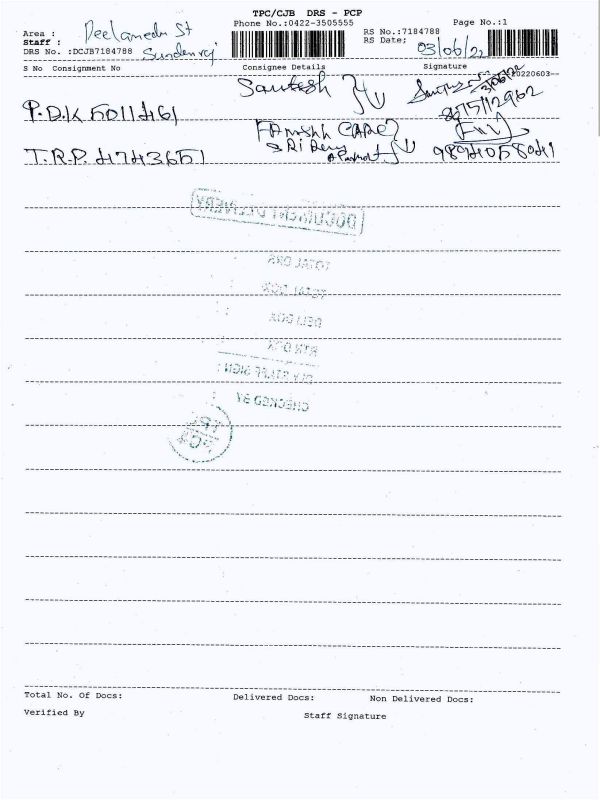 TPC/CJB DRS - PCP
Phone No.:0422-3505555
Page No.:1
Area : Peelamedu St
RS No.:7184788
Staff : Sundenraj
RS Date: 03/06/22
DRS No. :DCJB7184788
S No Consignment No Consignee Details Signature
20220603--
P.D.K 5011461 Santosh 3/06/22
875112962
T.R.P. 4743651 CARE 9894058041
DOCUMENT DELIVERY
TOTAL DRS
TOTAL DOX
DELI DOX
RTN DOX
DLY STAFF SIGN :
CHECKED BY :
Total No. Of Docs: Delivered Docs: Non Delivered Docs:
Verified By Staff Signature